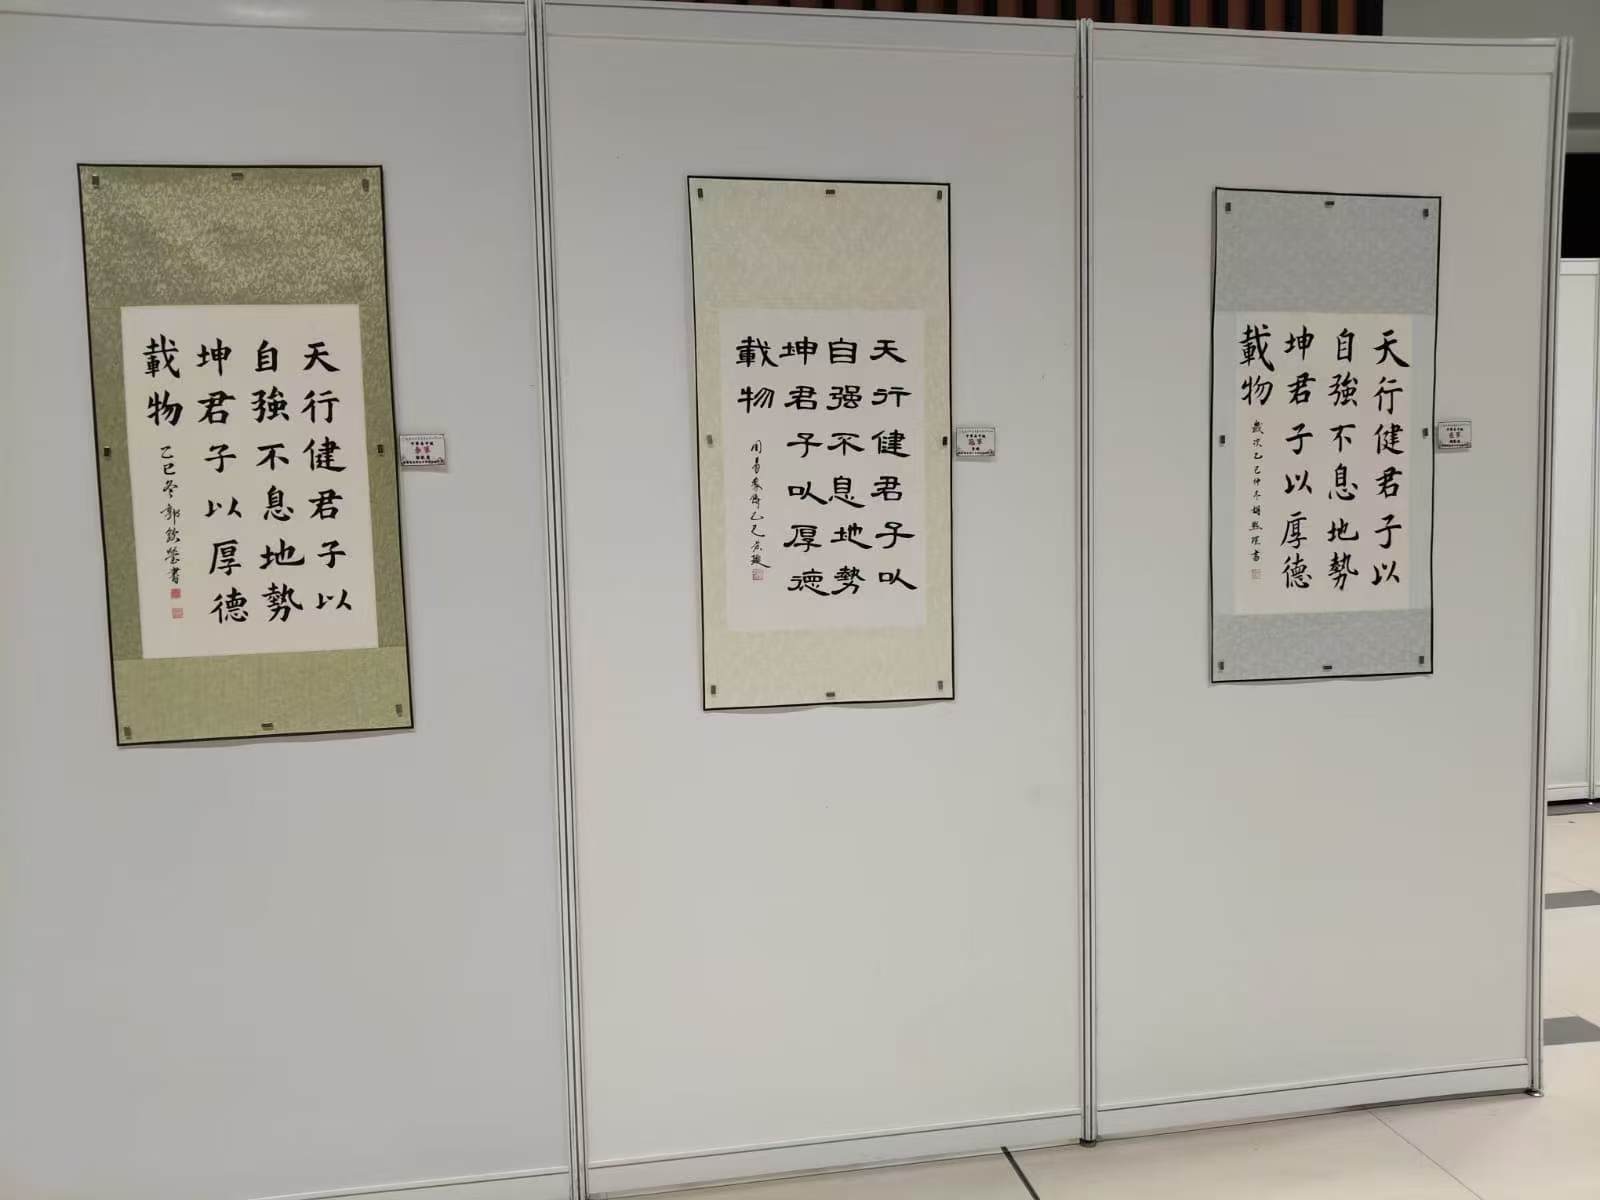 天行健君子以
自強不息地勢
坤君子以厚德
載物
乙巳冬郭書
天行健君子以
自强不息地勢
坤君子以厚德
載物
乙巳
天行健君子以
自強不息地勢
坤君子以厚德
載物
歲次乙巳仲冬書